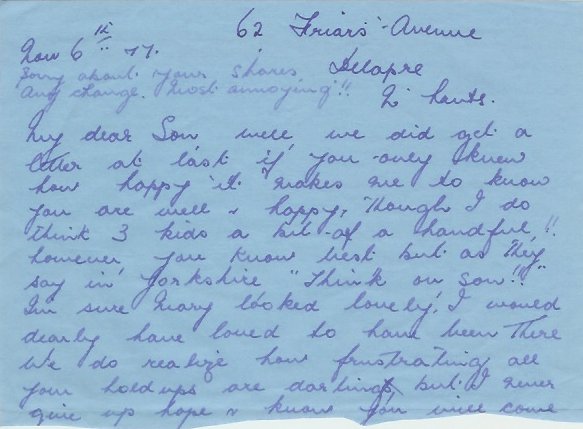 62 Friars' Avenue
Nov 6th 77.
Delapre
Sorry about your shares
any change. Most annoying!!
N' hants.
My dear Son well we did get a
letter at last if you only knew
how happy it makes me to know
you are well & happy, Though I do
think 3 kids a bit of a handful!!
however you know best but as they
say in Yorkshire "Think on Son!!"
I'm sure Mary looked lovely, I would
dearly have loved to have been There
We do realize how frustrating all
your holdups are darling, but I never
give up hope & know you will come